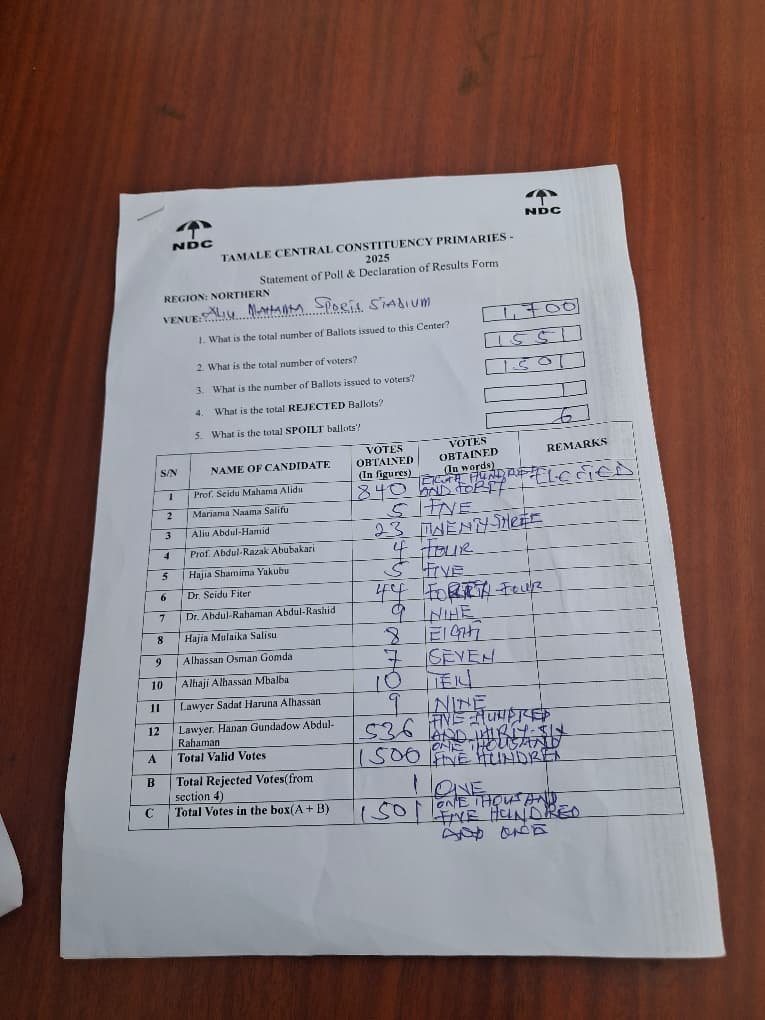 NDC
NDC
TAMALE CENTRAL CONSTITUENCY PRIMARIES -
2025
Statement of Poll & Declaration of Results Form
REGION: NORTHERN
VENUE: ALIU MAHAMA SPORTS STADIUM
1. What is the total number of Ballots issued to this Center? 1,700
2. What is the total number of voters? 1551
3. What is the number of Ballots issued to voters? 1501
4. What is the total REJECTED Ballots? 1
5. What is the total SPOILT ballots? 6
S/N NAME OF CANDIDATE VOTES OBTAINED (In figures) VOTES OBTAINED (In words) REMARKS
1 Prof. Seidu Mahama Alidu 840 EIGHT HUNDRED AND FORTY ELECTED
2 Mariama Naama Salifu 5 FIVE
3 Aliu Abdul-Hamid 23 TWENTY-THREE
4 Prof. Abdul-Razak Abubakari 4 FOUR
5 Hajia Shamima Yakubu 5 FIVE
6 Dr. Seidu Fiter 44 FORTY-FOUR
7 Dr. Abdul-Rahaman Abdul-Rashid 9 NINE
8 Hajia Mulaika Salisu 8 EIGHT
9 Alhassan Osman Gomda 7 SEVEN
10 Alhaji Alhassan Mbalba 10 TEN
11 Lawyer Sadat Haruna Alhassan 9 NINE
12 Lawyer. Hanan Gundadow Abdul-Rahaman 536 FIVE-HUNDRED AND THIRTY-SIX
A Total Valid Votes 1500 ONE THOUSAND FIVE HUNDRED
B Total Rejected Votes(from section 4) 1 ONE
C Total Votes in the box(A + B) 1501 ONE THOUSAND FIVE HUNDRED AND ONE